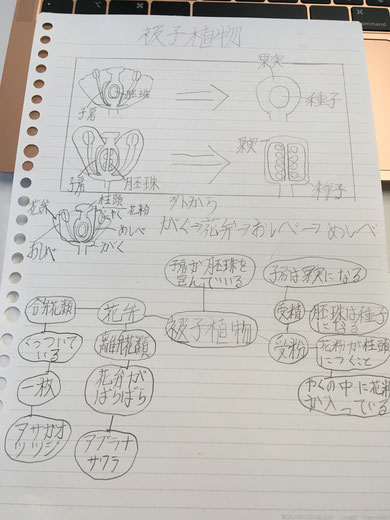 被子植物
胚珠
子房
果実
種子
子房
胚珠
果実
種子
花弁
柱頭
やく
花粉
めしべ
おしべ
がく
外から
がく→花弁→おしべ→めしべ
子房が胚珠を
包んでいる
子房は果実になる
合弁花類
花弁
被子植物
受精
胚珠は種子
になる
くっついて
いる
離弁花類
受粉
花粉が柱頭
につくこと
一枚
花弁が
ばらばら
やくの中に花粉
が入っている
アサガオ
ツツジ
アブラナ
サクラ